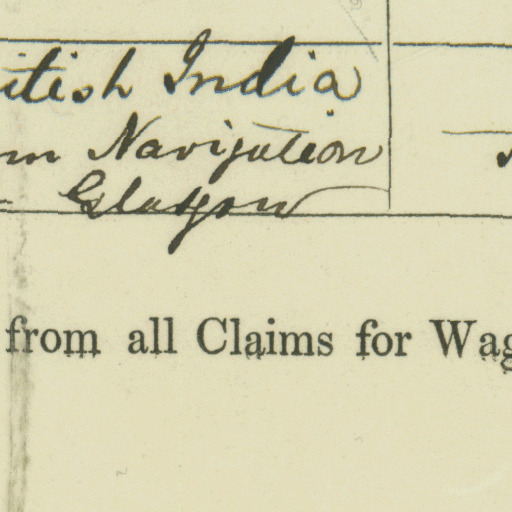 itish India
m Navigation
Glasgow
from all Claims for Wag